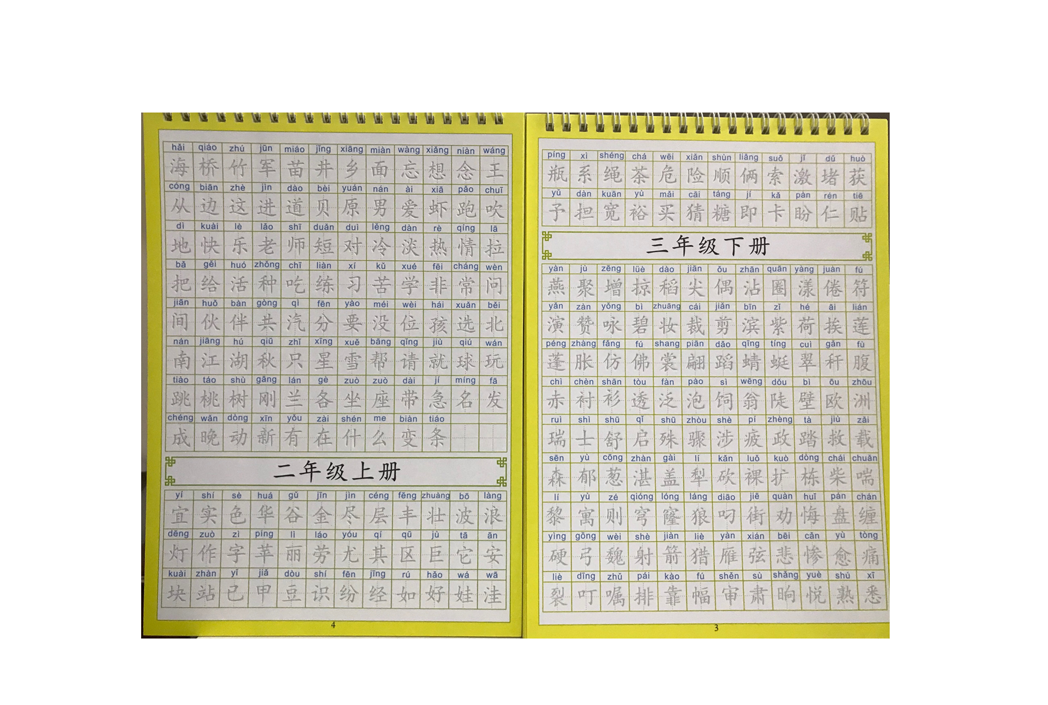 hǎi qiáo zhú jūn miáo jǐng xiāng miàn wàng xiǎng niàn wáng
海 桥 竹 军 苗 井 乡 面 忘 想 念 王
cóng biān zhè jìn dào bèi yuán nán ài xiā pǎo chuī
从 边 这 进 道 贝 原 男 爱 虾 跑 吹
dì kuài lè lǎo shī duǎn duì lěng dàn rè qíng lā
地 快 乐 老 师 短 对 冷 淡 热 情 拉
bǎ gěi huó zhǒng chī liàn xí kǔ xué fēi cháng wèn
把 给 活 种 吃 练 习 苦 学 非 常 问
jiān huǒ bàn gòng qì fēn yào méi wèi hái xuǎn běi
间 伙 伴 共 汽 分 要 没 位 孩 选 北
nán jiāng hú qiū zhǐ xīng xuě bāng qǐng jiù qiú wán
南 江 湖 秋 只 星 雪 帮 请 就 球 玩
tiào táo shù gāng lán gè zuò zuò dài jí míng fā
跳 桃 树 刚 兰 各 坐 座 带 急 名 发
chéng wǎn dòng xīn yǒu zài shén me biàn tiáo
成 晚 动 新 有 在 什 么 变 条
二年级上册
yí shí sè huá gǔ jīn jìn céng fēng zhuàng bō làng
宜 实 色 华 谷 金 尽 层 丰 壮 波 浪
dēng zuò zì píng lì láo yóu qí qū jù tā ān
灯 作 字 苹 丽 劳 尤 其 区 巨 它 安
kuài zhàn yǐ jiǎ dòu shí fēn jīng rú hǎo wá wā
块 站 已 甲 豆 识 纷 经 如 好 娃 洼
4
píng xì shéng chá wēi xiǎn shùn liǎng suǒ jī dǔ huò
瓶 系 绳 茶 危 险 顺 俩 索 激 堵 获
yǔ dàn kuān yù mǎi cāi táng jí kǎ pàn rén tiē
予 担 宽 裕 买 猜 糖 即 卡 盼 仁 贴
三年级下册
yàn jù zēng lüè dào jiān ǒu zhān quān yàng juàn fú
燕 聚 增 掠 稻 尖 偶 沾 圈 漾 倦 符
yǎn zàn yǒng bì zhuāng cái jiǎn bīn zǐ hé āi lián
演 赞 咏 碧 妆 裁 剪 滨 紫 荷 挨 莲
péng zhàng fǎng fú shang piān dǎo qīng tíng cuì gǎn fù
蓬 胀 仿 佛 裳 翩 蹈 蜻 蜓 翠 秆 腹
chì chèn shān tòu fàn pào sì wēng dǒu bì ōu zhōu
赤 衬 衫 透 泛 泡 饲 翁 陡 壁 欧 洲
ruì shì shū qǐ shū zhòu shè pí zhèng tà jiù zài
瑞 士 舒 启 殊 骤 涉 疲 政 踏 救 载
sēn yù cōng zhàn gài lí kǎn luǒ kuò dòng chái chuǎn
森 郁 葱 湛 盖 犁 砍 裸 扩 栋 柴 喘
lí yù zé qióng lóng láng diāo jiē quàn huǐ pán chán
黎 寓 则 穹 窿 狼 叼 街 劝 悔 盘 缠
yìng gōng wèi shè jiàn liè yàn xián bēi cǎn yù tòng
硬 弓 魏 射 箭 猎 雁 弦 悲 惨 愈 痛
liè dīng zhǔ pái kào fú shěn sù shǎng yuè shú xī
裂 叮 嘱 排 靠 幅 审 肃 晌 悦 熟 悉
3